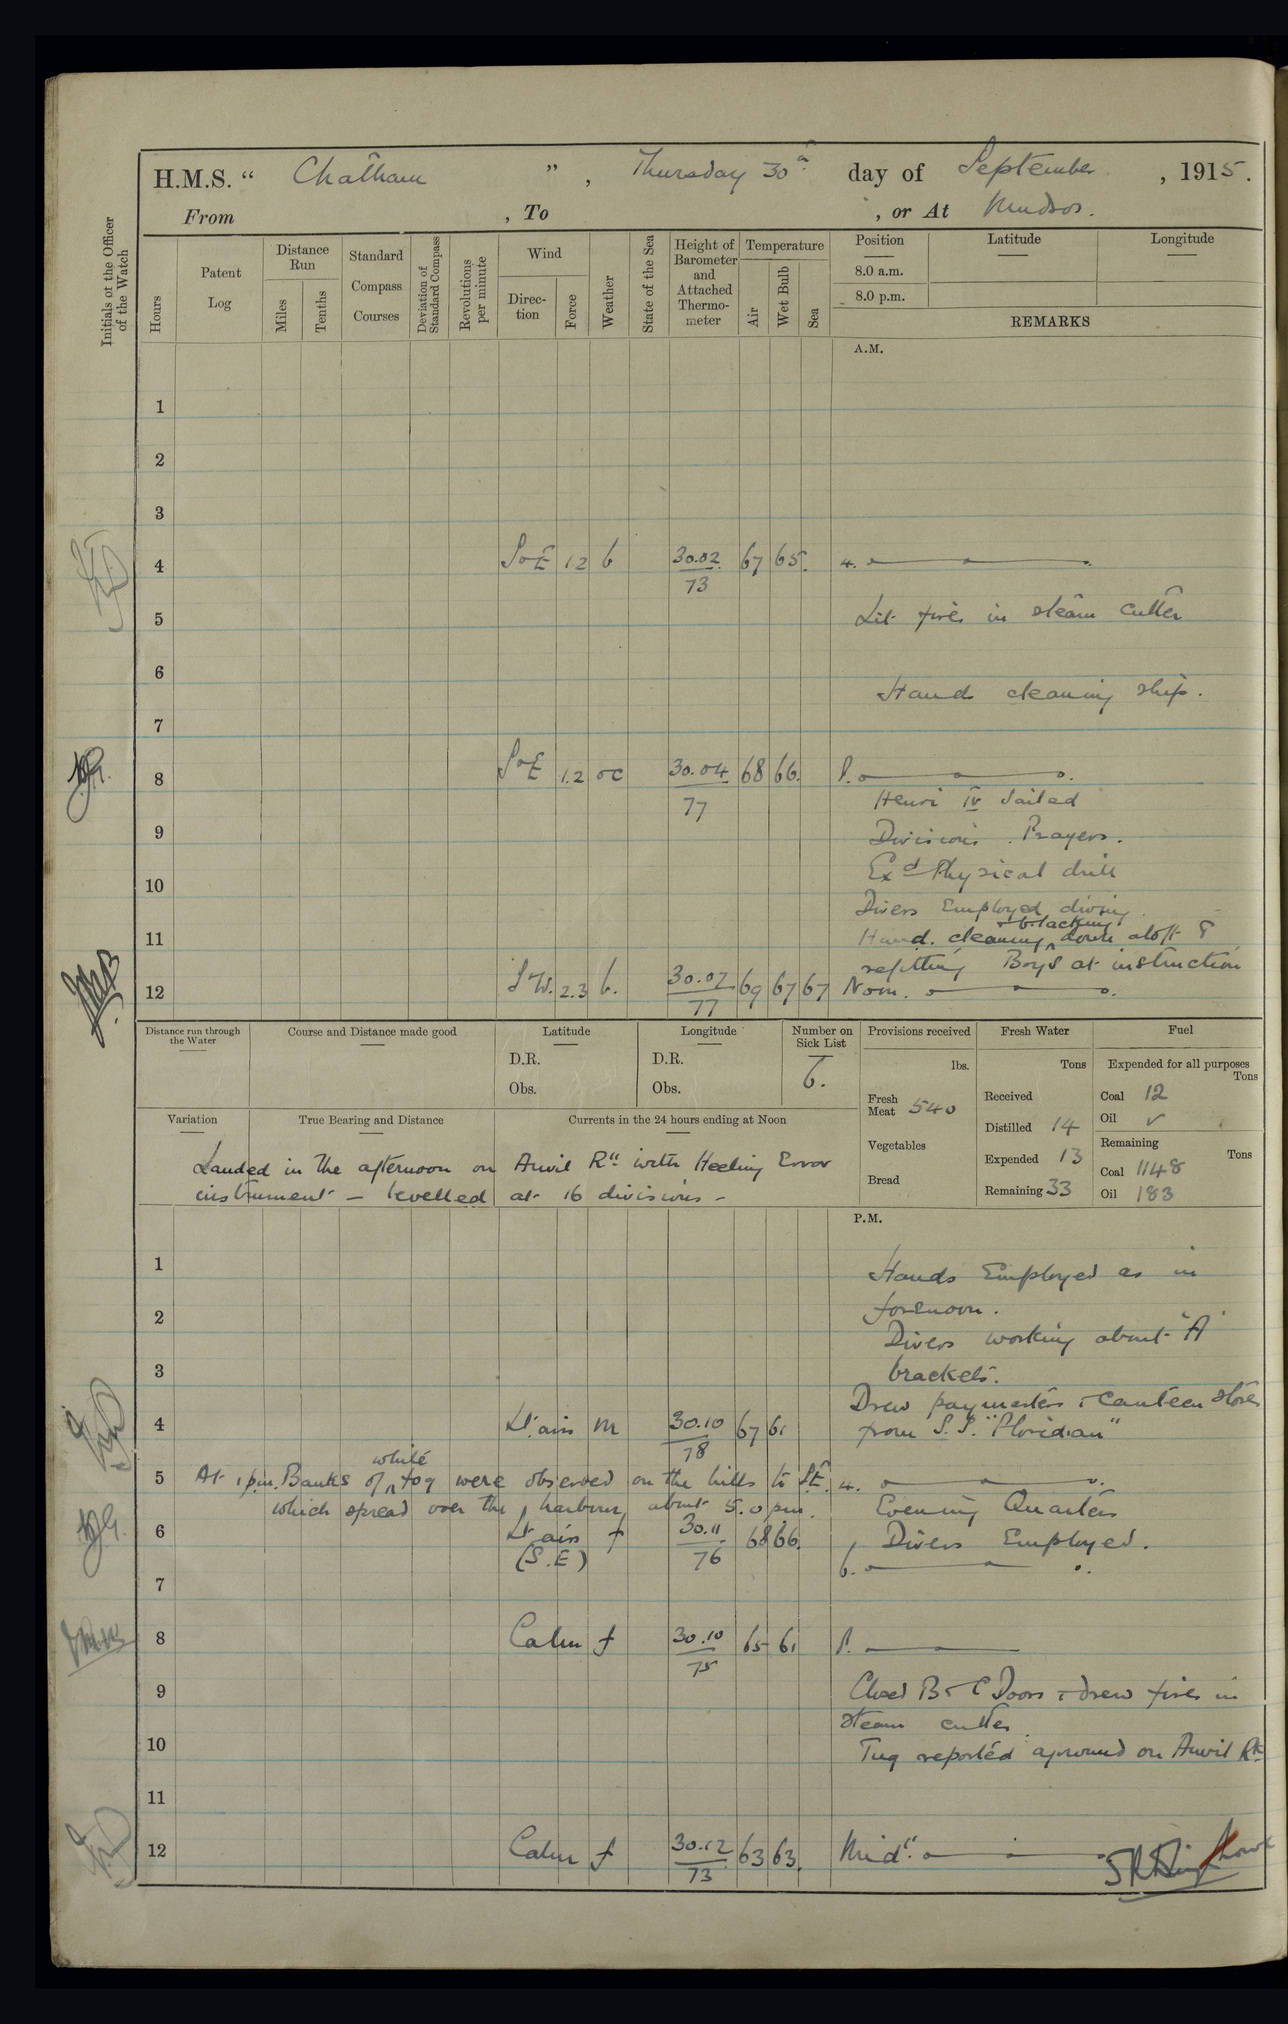 H.M.S. “ Chatham ”, Thursday 30th day of September, 1915.
From , To , or At Mudros.
Initials of the Officer of the Watch
Hours
Patent Log
Distance Run
Miles
Tenths
Standard Compass Courses
Deviation of Standard Compass
Revolutions per minute
Wind
Direction
Force
Weather
State of the Sea
Height of Barometer and Attached Thermometer
Temperature
Air
Wet Bulb
Sea
Position
8.0 a.m.
8.0 p.m.
Latitude
Longitude
REMARKS
A.M.
1
2
3
4 SoE 1.2 b 30.02 67 65. 4.
73
5 Lit fires in steam cutter
6
Hands cleaning ship.
7
8 SoE 1.2 oc 30.04 68 66. 8.
77
Henri IV sailed
9 Divisions. Prayers.
10 Exd Physical drill
Divers Employed diving
& blacking
11 Hands cleaning ^ down aloft &
refitting Boys at instruction
12 SW. 2.3 b. 30.07 69 67 67 Noon.
77
Distance run through the Water
Course and Distance made good
Latitude
D.R.
Obs.
Longitude
D.R.
Obs.
Number on Sick List
6.
Provisions received
lbs.
Fresh Meat 540
Vegetables
Bread
Fresh Water
Tons
Received
Distilled 14
Expended 13
Remaining 33
Fuel
Expended for all purposes
Tons
Coal 12
Oil ✓
Remaining
Tons
Coal 1148
Oil 183
Variation
True Bearing and Distance
Currents in the 24 hours ending at Noon
Landed in the afternoon on Anvil Rk with Heeling Error
instrument – levelled at 16 divisions –
P.M.
1 Hands Employed as in
2 forenoon.
Divers working about 'A'
3 brackets.
Drew paymasters & canteen stores
4 Lt airs m 30.10 67 61 from S.S. "Floridian"
78
white
5 At 1 p.m. Banks of ^ fog were observed on the hills to SE. 4.
which spread over the harbour about 5.0 pm. Evening Quarters
6 Lt airs f 30.11 68 66. Divers Employed.
(S.E) 76 6.
7
8 Calm f 30.10 65 61 8.
75
9 Closed B & C Doors & drew fires in
steam cutter.
10 Tug reported aground on Anvil Rk
11
12 Calm f 30.12 63 63. Midt.
73